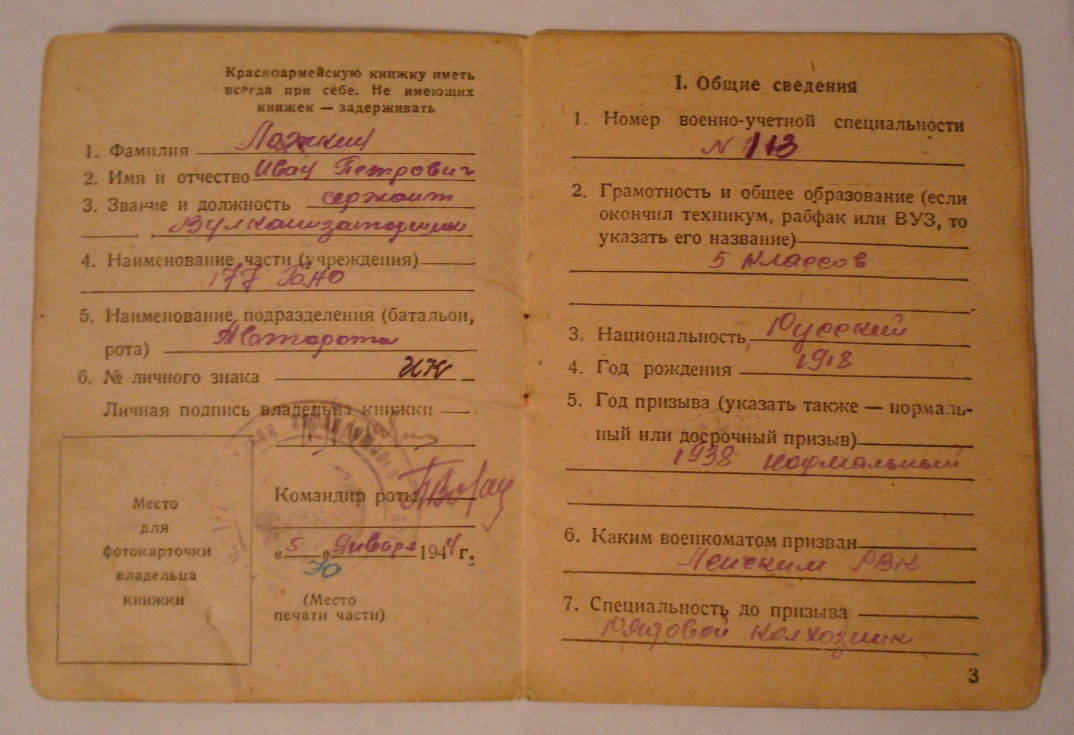 Красноармейскую книжку иметь
всегда при себе. Не имеющих
книжек — задерживать
1. Фамилия
2. Имя и отчество Иван Петрович
3. Звание и должность сержант
Вулканизаторщик
4. Наименование части (учреждения)
177
5. Наименование подразделения (батальон,
Авторота
рота)
6. № личного знака
Личная подпись владельца книжки
Место
для
фотокарточки
владельца
книжки
Командир роты
«5» Января 1944 г.
(Место
печати части)
I. Общие сведения
1. Номер военно-учетной специальности
N 113
2. Грамотность и общее образование (если
окончил техникум, рабфак или ВУЗ, то
указать его название)
5 классов
3. Национальность Русский
4. Год рождения 1918
5. Год призыва (указать также — нормаль-
ный или досрочный призыв)
1938 нормальный
6. Каким военкоматом призван
РВК
7. Специальность до призыва
Рядовой колхозник
3